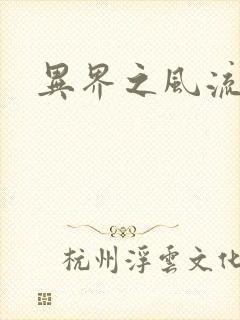 異界之風流
杭州浮雲文化